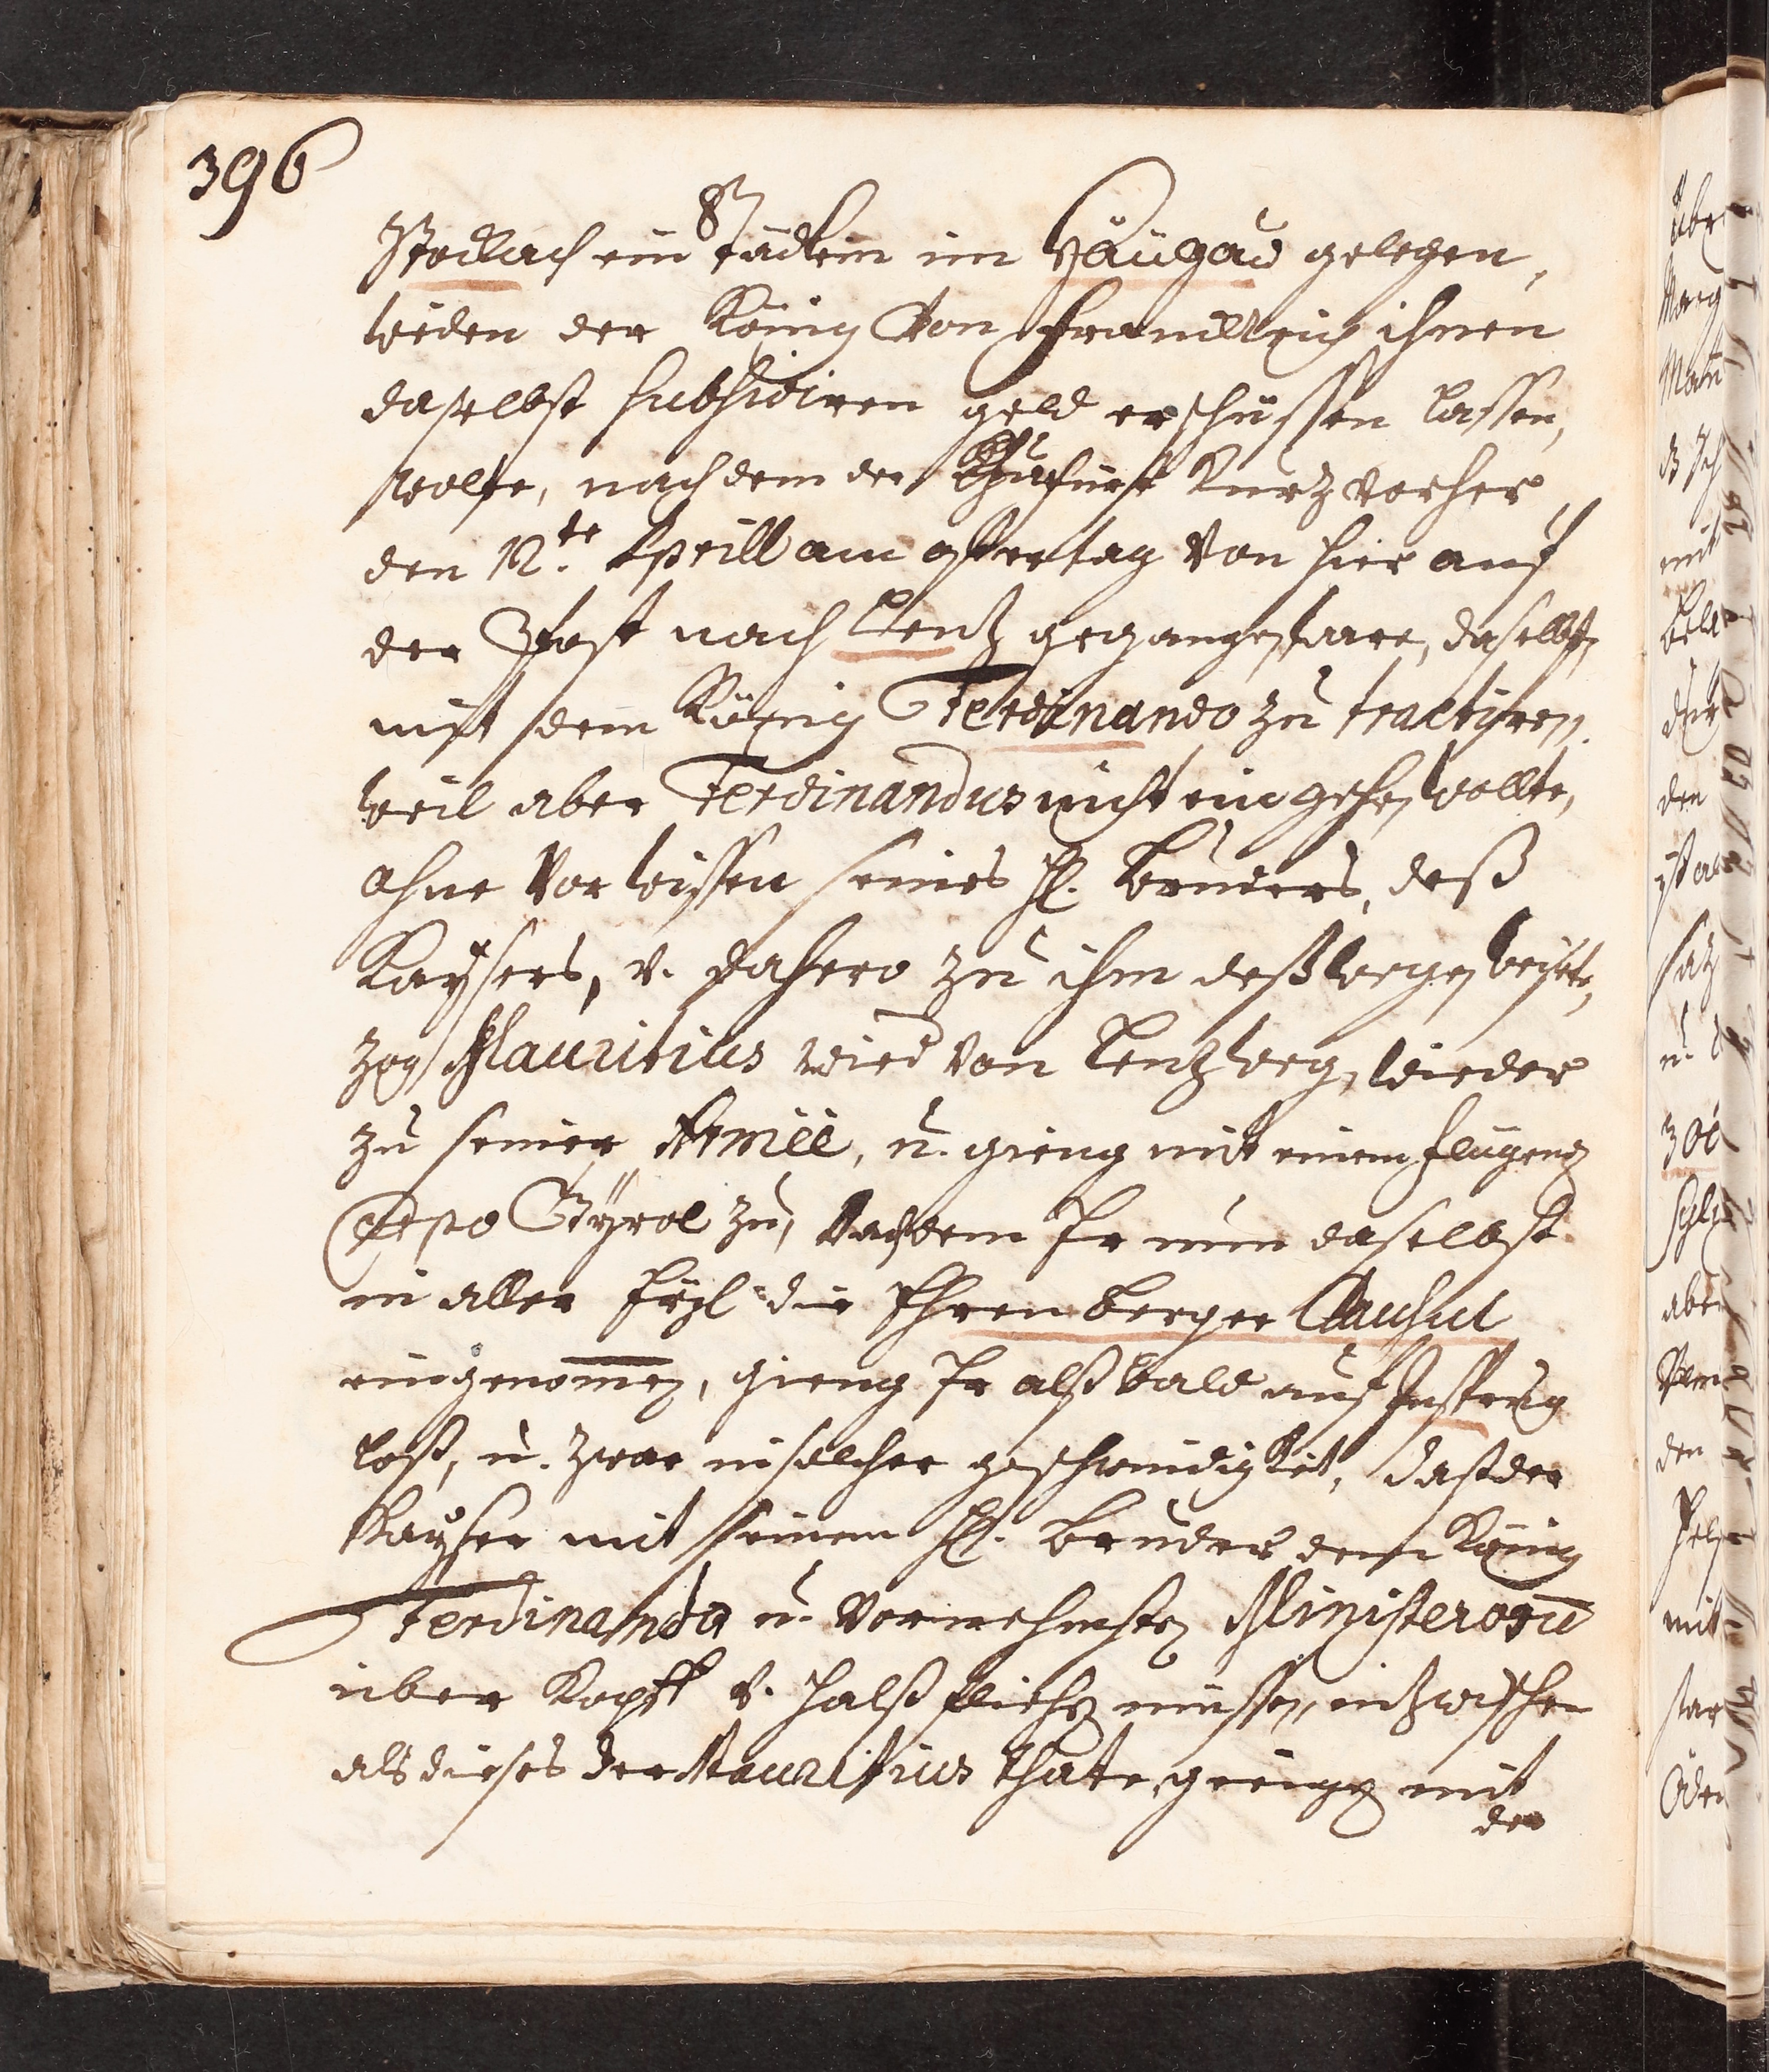 396
Stockach ein Städtlein im Häügaü gelegen,
wieden der König Von Franckreich ihnen
daselbst subsidiren geld erschüssen lassen,
wolte, nach dem der Churfürst Kurtz vorher
den 12.te Aprill am ostertag Von hier auf
der Post nach Lentz gegangen ware, daselbst
mit dem König Ferdinando zu tractiren.
weil aber Ferdinandus nicht eingehen wollte,
ohne Vorwissen seines H. Bruders, deß
Kaysers, v. dahero zu ihm deßwegen
zog Mauritius wied von Lentz weg, wieder
zu seiner Armee, u. gieng mit einem flügend
Tyrol zu, Nachdem Er nun daselbst
in aller Eyl die Ehrenberger Clausul
eingenommen, gieng Er alßbald auf Insprug
loß, u. zwar in solcher geschwindigkeit, daß der
Kayser mit seinem H. Bruder dem König
Ferdinando u. Vornehmsten Ministeroru
über Kopff v. Halß fliehen müssen, intzwischen
als dieses der Mauritius thate, giengen mit
der